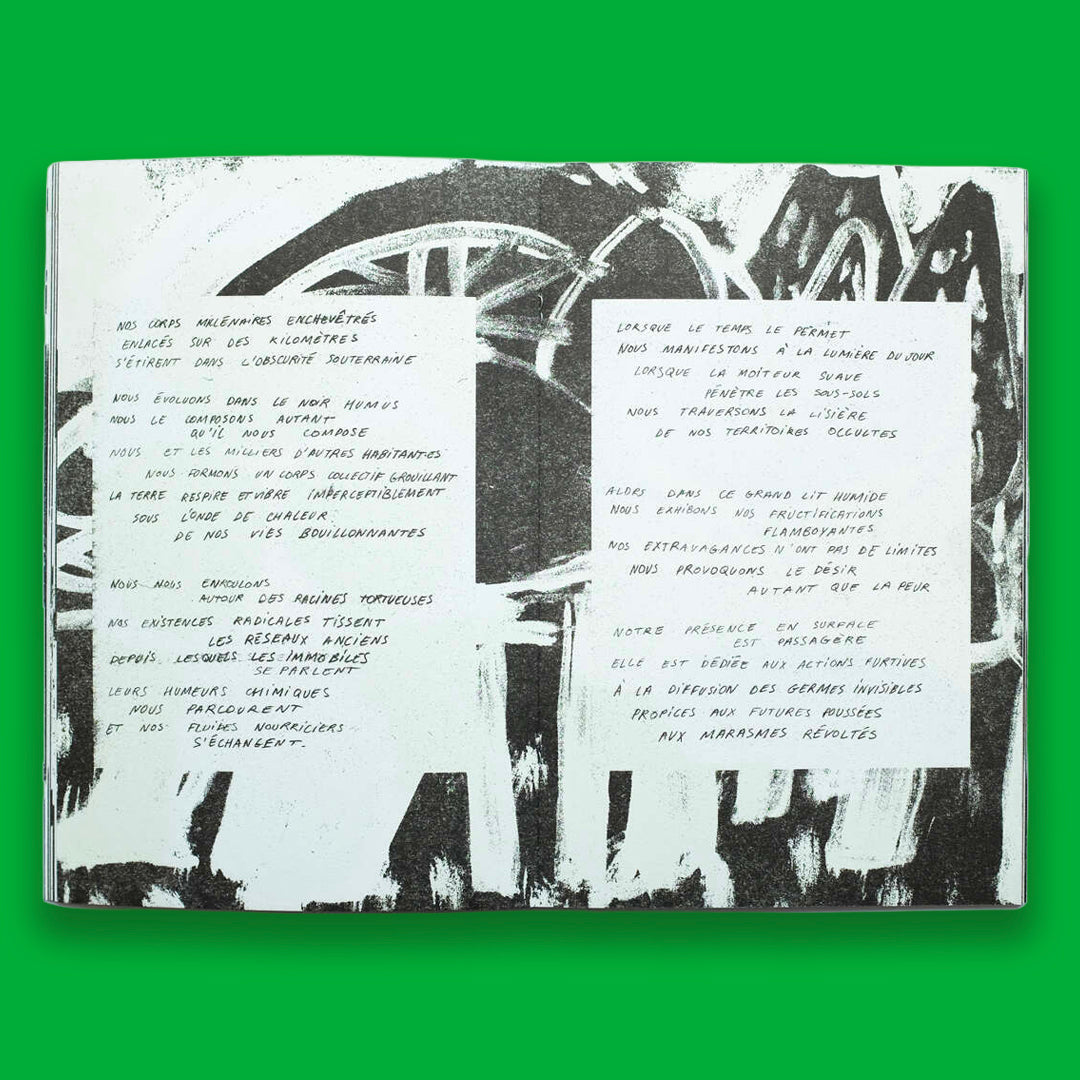 NOS CORPS MILLÉNAIRES ENCHEVÊTRÉS
ENLACÉS SUR DES KILOMÈTRES
S'ÉTIRENT DANS L'OBSCURITÉ SOUTERRAINE
NOUS ÉVOLUONS DANS LE NOIR HUMUS
NOUS LE COMPOSONS AUTANT
QU'IL NOUS COMPOSE
NOUS ET LES MILLIERS D'AUTRES HABITANT·ES
NOUS FORMONS UN CORPS COLLECTIF GROUILLANT
LA TERRE RESPIRE ET VIBRE IMPERCEPTIBLEMENT
SOUS L'ONDE DE CHALEUR
DE NOS VIES BOUILLONNANTES
NOUS NOUS ENROULONS
AUTOUR DES RACINES TORTUEUSES
NOS EXISTENCES RADICALES TISSENT
LES RÉSEAUX ANCIENS
DEPUIS LESQUELS LES IMMOBILES
SE PARLENT
LEURS HUMEURS CHIMIQUES
NOUS PARCOURENT
ET NOS FLUIDES NOURRICIERS
S'ÉCHANGENT.
LORSQUE LE TEMPS LE PERMET
NOUS MANIFESTONS À LA LUMIÈRE DU JOUR
LORSQUE LA MOITEUR SUAVE
PÉNÈTRE LES SOUS-SOLS
NOUS TRAVERSONS LA LISIÈRE
DE NOS TERRITOIRES OCCULTES
ALORS DANS CE GRAND LIT HUMIDE
NOUS EXHIBONS NOS FRUCTIFICATIONS
FLAMBOYANTES
NOS EXTRAVAGANCES N'ONT PAS DE LIMITES
NOUS PROVOQUONS LE DÉSIR
AUTANT QUE LA PEUR
NOTRE PRÉSENCE EN SURFACE
EST PASSAGÈRE
ELLE EST DÉDIÉE AUX ACTIONS FURTIVES
À LA DIFFUSION DES GERMES INVISIBLES
PROPICES AUX FUTURES POUSSÉES
AUX MARASMES RÉVOLTÉS